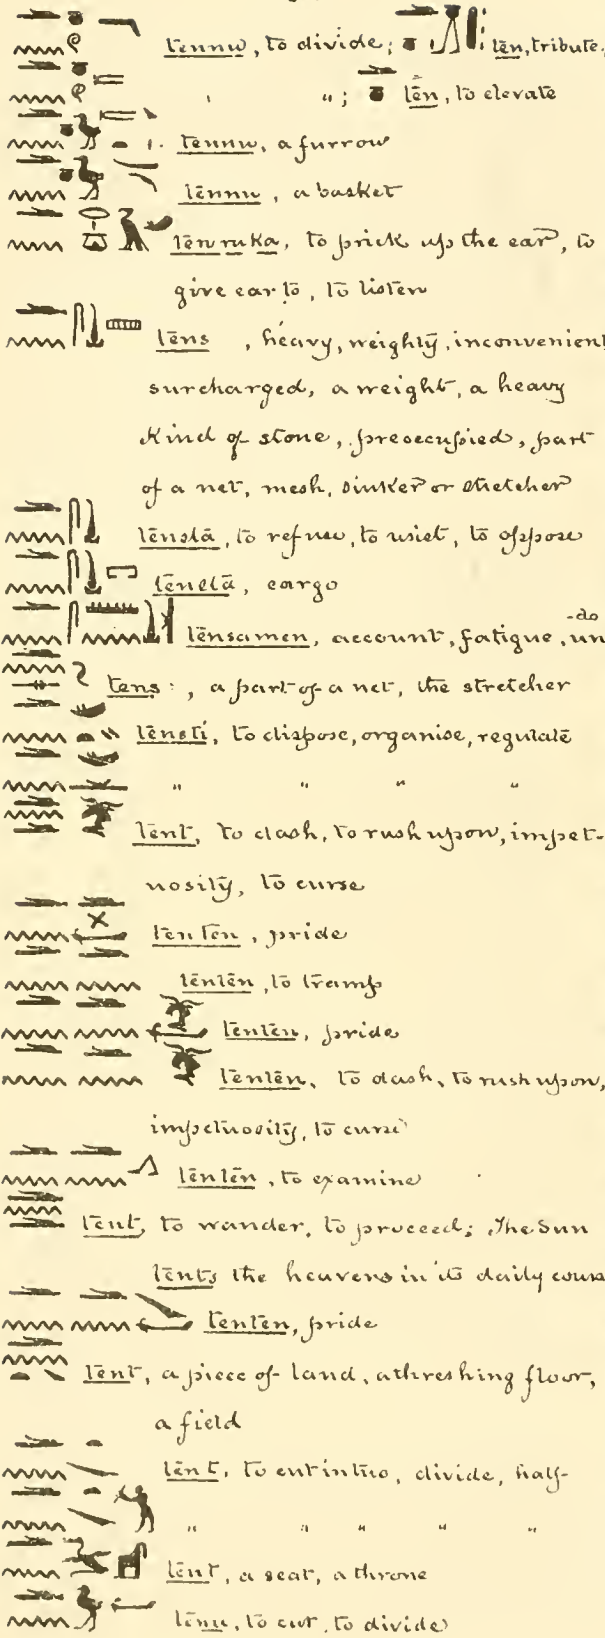 tennu, to divide; ten, tribute.
" "; tēn, to elevate
tennu, a furrow
tēnnu, a basket
tēnruka, to prick up the ear, to
give ear to, to listen
tēns, heavy, weighty, inconvenient
surcharged, a weight, a heavy
kind of stone, preoccupied, part
of a net, mesh, sinker or stretcher
tēnstā, to refuse, to resist, to oppose
tēnstā, cargo
tēnsamen, account, fatigue, un-do
tens:, a part of a net, the stretcher
tēnsti, to dispose, organise, regulate
" " " "
tent, to clash, to rush upon, impet-
uosity, to curse
tenten, pride
tēntēn, to tramp
tēntēn, pride
tēntēn, to dash, to rush upon,
impetuosity, to curse
tēntēn, to examine
tent, to wander, to proceed; The Sun
tents the heavens in its daily cours
tenten, pride
tent, a piece of land, a threshing floor,
a field
tēnt, to cut in two, divide, half-
" " " " "
tēnt, a seat, a throne
tēnu, to cut, to divide